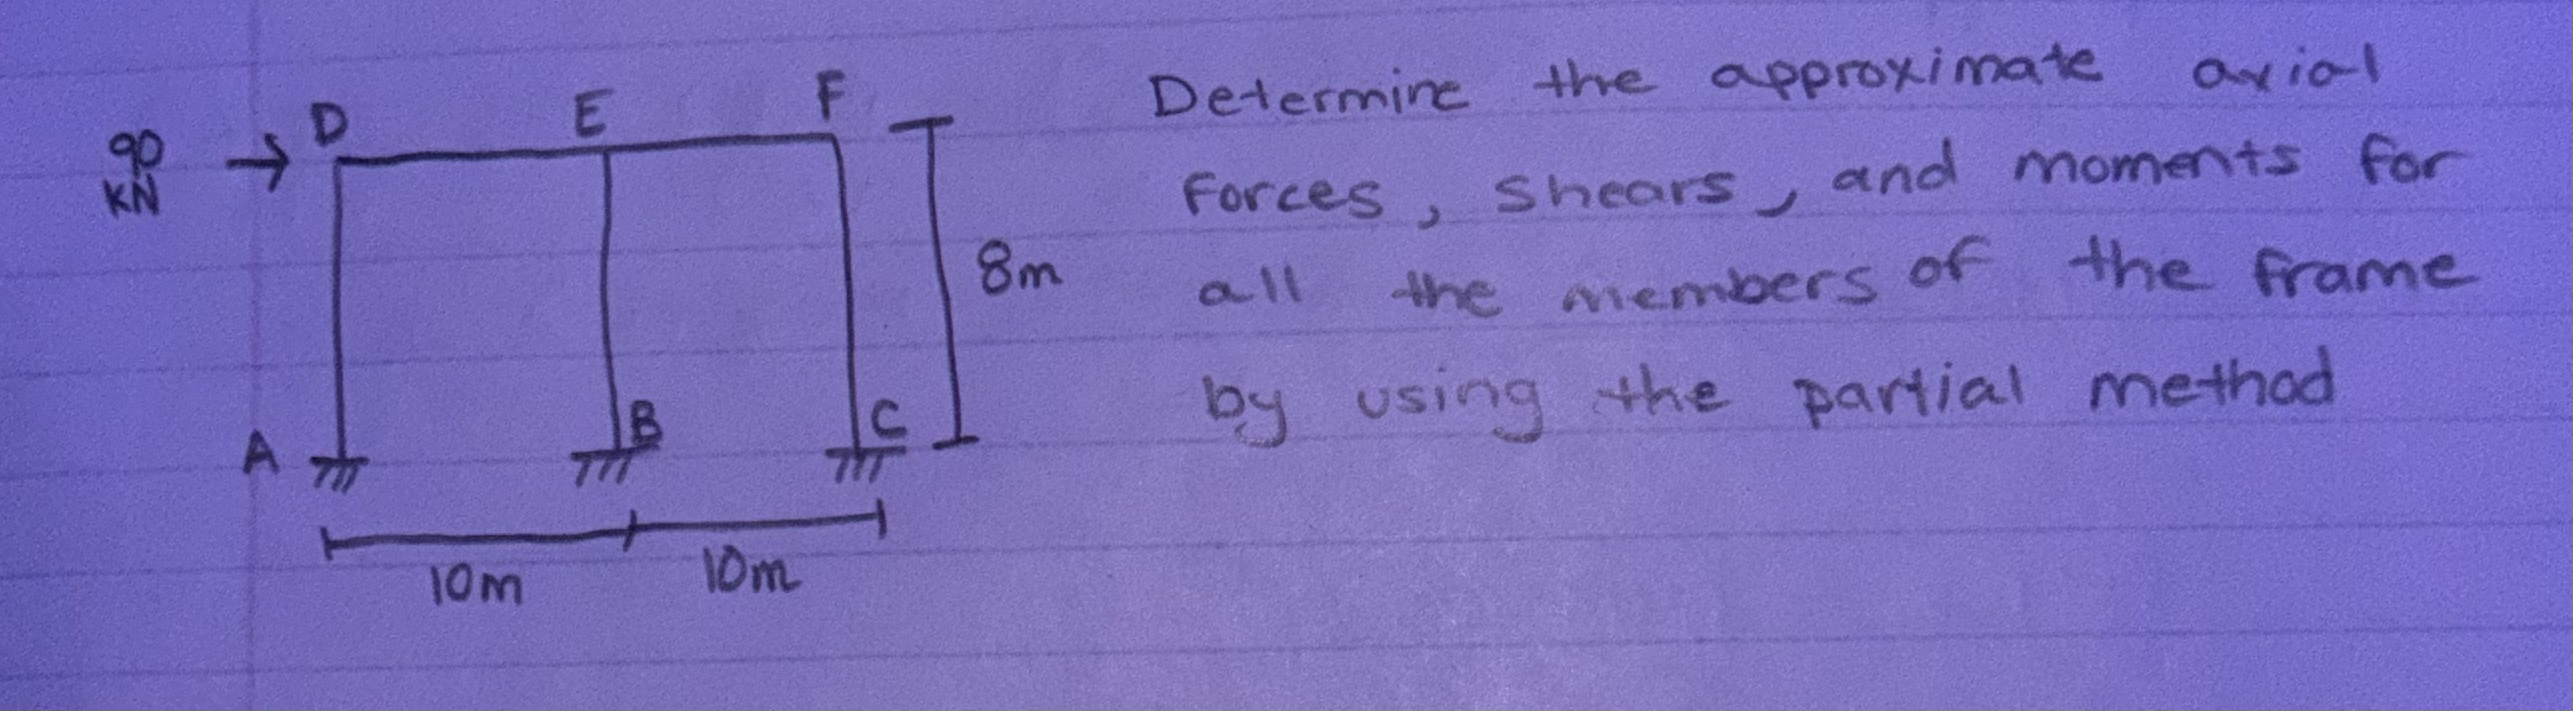 D E F
90
KN
Determine the approximate axial
forces, shears, and moments for
8m
all the members of the frame
by using the partial method
A B C
10m 10m